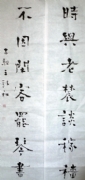 時與老農談稼穡
不因閒客罷琴書